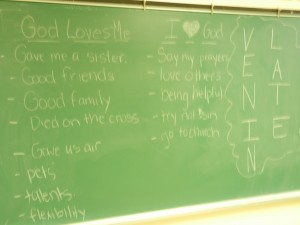 God Loves Me
- Gave me a sister
- Good friends
- Good family
- Died on the cross
- Gave us air
- pets
- talents
- flexibility
I ♥ God
- Say my prayers
- love others
- being helpful
- try not sin
- go to church
VENIN
LATE